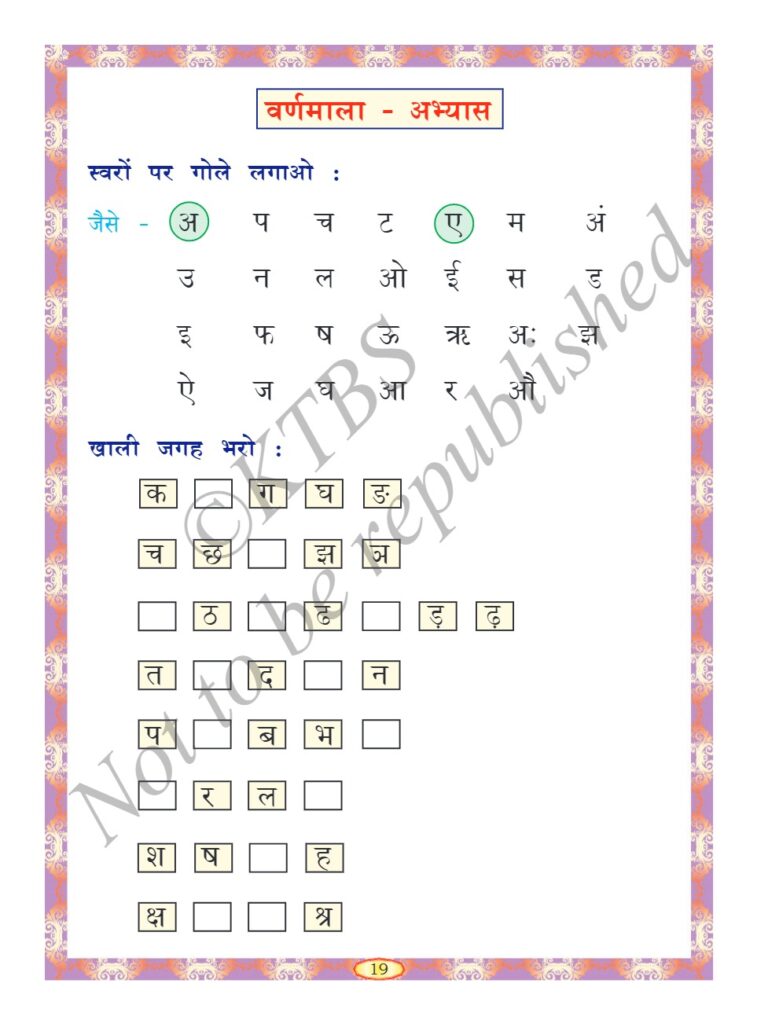 वर्णमाला - अभ्यास
स्वरों पर गोले लगाओ :
जैसे - अ प च ट ए म अं
उ न ल ओ ई स ड
इ फ ष ऊ ऋ अः झ
ऐ ज घ आ र औ
खाली जगह भरो :
क ग घ ङ
च छ झ ञ
ठ ढ ड़ ढ़
त द न
प ब भ
र ल
श ष ह
क्ष श्र
©KTBS
Not to be republished
19